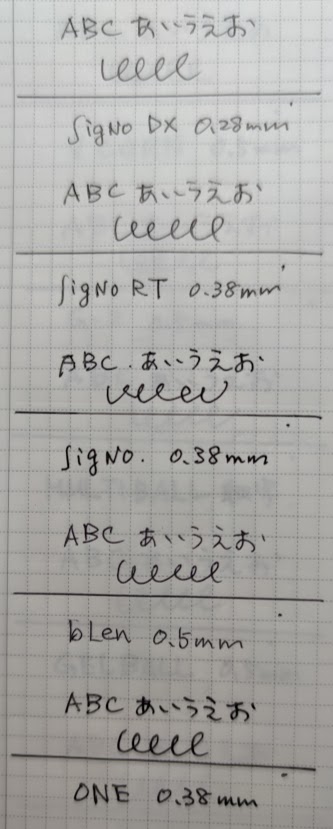 ABC あいうえお
SigNo DX 0.28mm
ABC あいうえお
SigNo RT 0.38mm
ABC.あいうえお
SigNo. 0.38mm
ABC あいうえお
bLen 0.5mm
ABC あいうえお
ONE 0.38mm